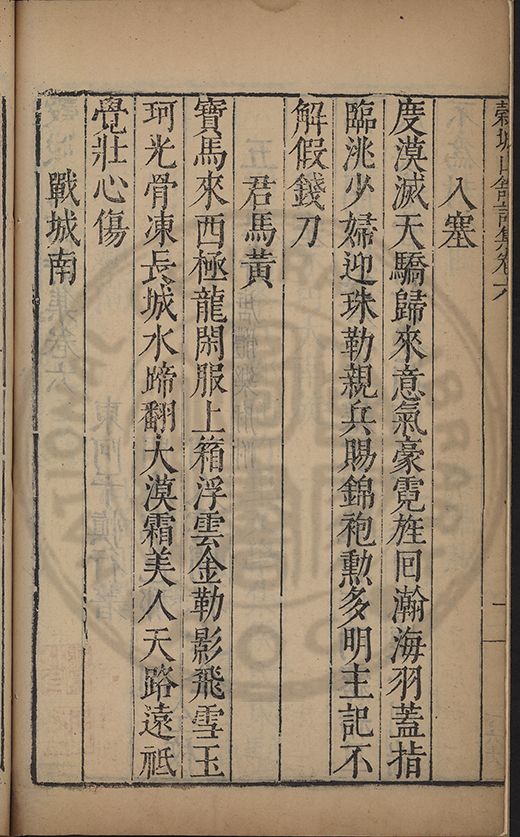 穀城山館詩集卷六
入塞
度漠滅天驕歸來意氣豪霓旌回瀚海羽蓋指
臨洮少婦迎珠勒親兵賜錦袍勲多明主記不
解假錢刀
君馬黃
寳馬來西極龍閑服上箱浮雲金勒影飛雪玉
珂光骨凍長城水蹄翻大漠霜美人天路遠祗
覺壯心傷
戰城南